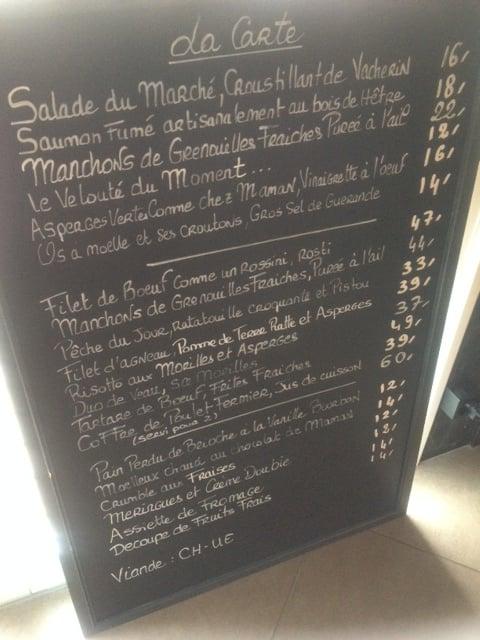 La Carte
Salade du Marché, Croustillant de Vacherin 16,-
Saumon Fumé artisanalement au bois de Hêtre 18,-
Manchons de Grenouilles Fraiches Purée à l'ail 22,-
Le Velouté du Moment... 12,-
Asperges Vertes Comme chez Maman, Vinaigrette à l'oeuf 16,-
Os a moelle et ses croutons, Gros Sel de Guerande 14,-
Filet de Boeuf Comme un Rossini, Rosti 47,-
Manchons de Grenouilles Fraiches, Purée à l'ail 44,-
Pêche du Jour, Ratatouille croquante et Pistou 33,-
Filet d'agneau, Pomme de Terre Ratte et Asperges 39,-
Risotto aux Morilles et Asperges 37,-
Duo de Veau, Sce Morilles 49,-
Tartare de Boeuf, Frites Fraiches 39,-
Coffre de Poulet Fermier, Jus de cuisson 60,-
(servi pour 2)
Pain Perdu de Brioche a la Vanille Bourbon 12,-
Moelleux chaud au chocolat de Maman 14,-
Crumble aux Fraises 12,-
Meringues et Crème Double 13,-
Assiette de Fromage 14,-
Decoupe de Fruits Frais 14,-
Viande : CH-UE